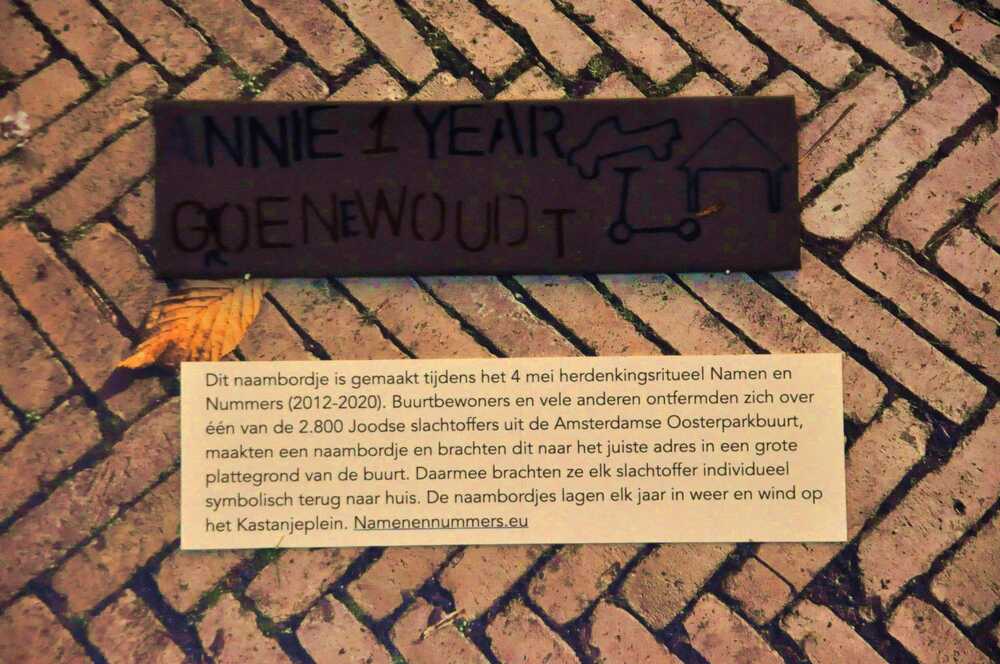 ANNIE 1 YEAR
GROENEWOUDT
Dit naambordje is gemaakt tijdens het 4 mei herdenkingsritueel Namen en
Nummers (2012-2020). Buurtbewoners en vele anderen ontfermden zich over
één van de 2.800 Joodse slachtoffers uit de Amsterdamse Oosterparkbuurt,
maakten een naambordje en brachten dit naar het juiste adres in een grote
plattegrond van de buurt. Daarmee brachten ze elk slachtoffer individueel
symbolisch terug naar huis. De naambordjes lagen elk jaar in weer en wind op
het Kastanjeplein. Namenennummers.eu